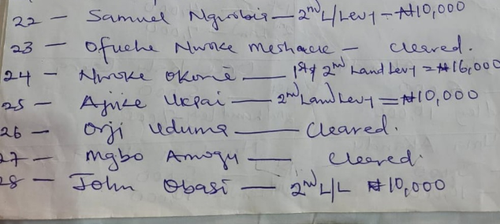 22 - Samuel Ngwobia - 2nd L/Levy - ₦10,000
23 - Ofuche Nwoke Meshack - Cleared.
24 - Nwoke Okorie - 1st & 2nd Land Levy = ₦16,000
25 - Ajike Ukpai - 2nd Land Levy = ₦10,000
26 - Orji Uduma - Cleared.
27 - Mgbo Amogu - Cleared.
28 - John Obasi - 2nd L/L ₦10,000